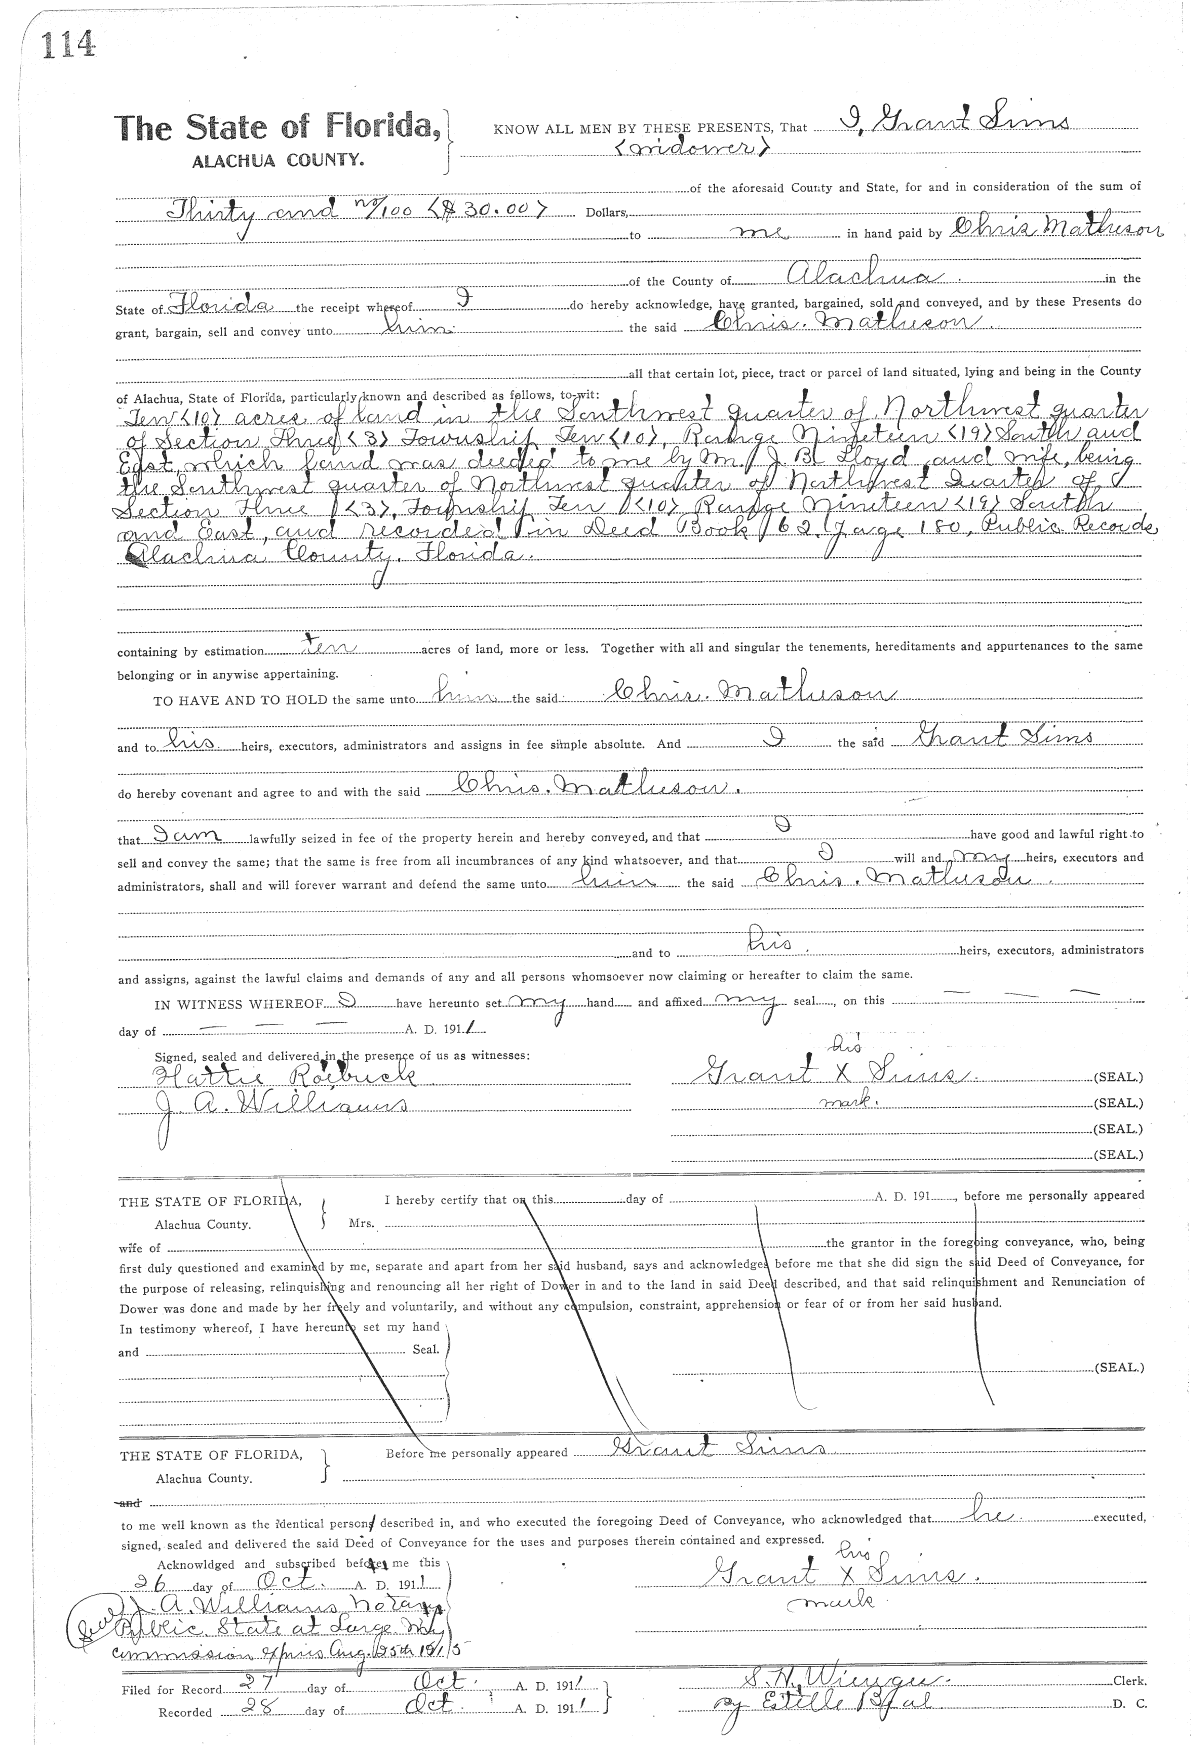 114
The State of Florida, KNOW ALL MEN BY THESE PRESENTS, That I, Grant Sims
ALACHUA COUNTY. <widower>
of the aforesaid County and State, for and in consideration of the sum of
Thirty and no/100 <$30.00> Dollars,
to me in hand paid by Chris Matheson
of the County of Alachua. in the
State of Florida the receipt whereof I do hereby acknowledge, have granted, bargained, sold and conveyed, and by these Presents do
grant, bargain, sell and convey unto him the said Chris. Matheson.
all that certain lot, piece, tract or parcel of land situated, lying and being in the County
of Alachua, State of Florida, particularly known and described as follows, to-wit:
Ten <10> acres of land in the Southwest quarter of Northwest quarter
of Section Three <3> Township Ten <10>, Range Nineteen <19> South and
East, which land was deeded to me by Mr. J. B. Lloyd and wife, being
the Southwest quarter of Northwest quarter of Northwest Quarter of
Section Three <3>, Township Ten <10> Range Nineteen <19> South
and East, and recorded in Deed Book 62 page 180, Public Records
Alachua County, Florida.
containing by estimation ten acres of land, more or less. Together with all and singular the tenements, hereditaments and appurtenances to the same
belonging or in anywise appertaining.
TO HAVE AND TO HOLD the same unto him the said Chris. Matheson
and to his heirs, executors, administrators and assigns in fee simple absolute. And I the said Grant Sims
do hereby covenant and agree to and with the said Chris. Matheson.
that I am lawfully seized in fee of the property herein and hereby conveyed, and that I have good and lawful right to
sell and convey the same; that the same is free from all incumbrances of any kind whatsoever, and that I will and my heirs, executors and
administrators, shall and will forever warrant and defend the same unto him the said Chris. Matheson.
and to his. heirs, executors, administrators
and assigns, against the lawful claims and demands of any and all persons whomsoever now claiming or hereafter to claim the same.
IN WITNESS WHEREOF I have hereunto set my hand and affixed my seal, on this — — —
day of — — — A. D. 1911
Signed, sealed and delivered in the presence of us as witnesses: his
Hattie Roebuck Grant X Sims. (SEAL.)
J. A. Williams mark. (SEAL.)
(SEAL.)
(SEAL.)
THE STATE OF FLORIDA, I hereby certify that on this day of A. D. 191 , before me personally appeared
Alachua County. Mrs.
wife of the grantor in the foregoing conveyance, who, being
first duly questioned and examined by me, separate and apart from her said husband, says and acknowledges before me that she did sign the said Deed of Conveyance, for
the purpose of releasing, relinquishing and renouncing all her right of Dower in and to the land in said Deed described, and that said relinquishment and Renunciation of
Dower was done and made by her freely and voluntarily, and without any compulsion, constraint, apprehension or fear of or from her said husband.
In testimony whereof, I have hereunto set my hand
and Seal.
(SEAL.)
THE STATE OF FLORIDA, Before me personally appeared Grant Sims
Alachua County.
and
to me well known as the identical person described in, and who executed the foregoing Deed of Conveyance, who acknowledged that he executed,
signed, sealed and delivered the said Deed of Conveyance for the uses and purposes therein contained and expressed.
Acknowldged and subscribed before me this his
26 day of Oct. A. D. 1911 Grant X Sims.
J. A. Williams Notary mark.
Public. State at Large. My
commission expires Aug. 25th 1915
Filed for Record 27 day of Oct. A. D. 1911 S. H. Wienges. Clerk.
Recorded 28 day of Oct. A. D. 1911 By Estelle D. C.